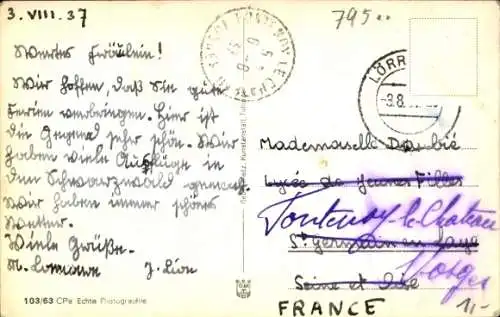 3. VIII. 37
795..
Wertes Fräulein!
Wir hoffen, daß Sie gute
Ferien verbringen. Hier ist
die Gegend sehr schön. Wir
haben viele Ausflüge in
den Schwarzwald gemacht.
Wir haben immer schönes
Wetter.
Viele Grüße.
103/63 CPa Echte Photographie
LÖRR
-3.8.
Mademoiselle
Lycée de Jeunes Filles
Fontenoy le Chateau
St Germain en Laye
Vosges
Seine et Oise
FRANCE
1,-